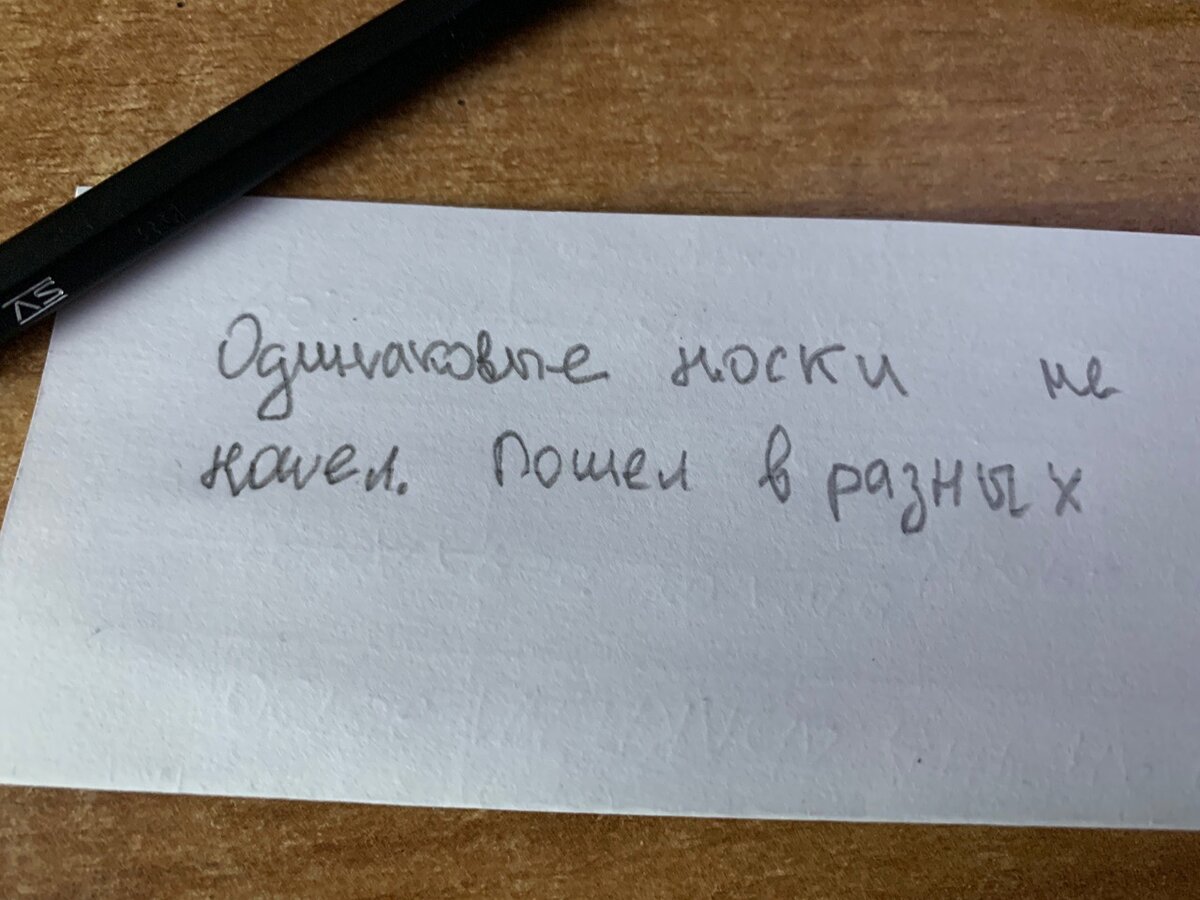 Одинаковые носки не
нашел. Пошел в разных